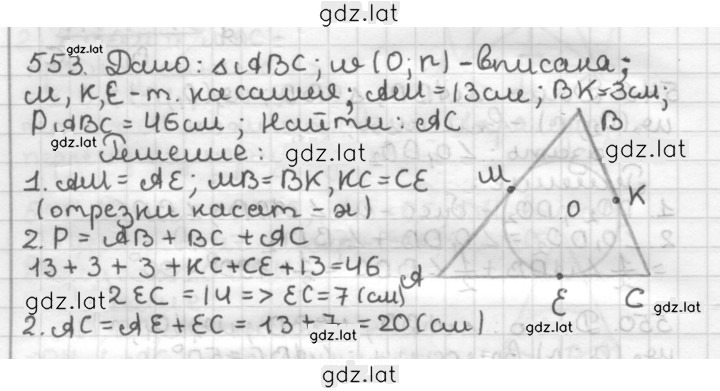 gdz.lat
gdz.lat
553. Дано: △ABC; w (O; r) - вписана;
M, K, E - т. касания; AM = 13 см; BK = 3 см;
P△ABC = 46 см; Найти: AC
gdz.lat
Решение:
gdz.lat
gdz.lat
1. AM = AE; MB = BK, KC = CE
(отрезки касат - х)
2. P = AB + BC + AC
13 + 3 + 3 + KC + CE + 13 = 46
gdz.lat
2EC = 14 => EC = 7 (см)
2. AC = AE + EC = 13 + 7 = 20 (см)
gdz.lat
B
M
K
O
A
E
C
gdz.lat
gdz.lat
gdz.lat